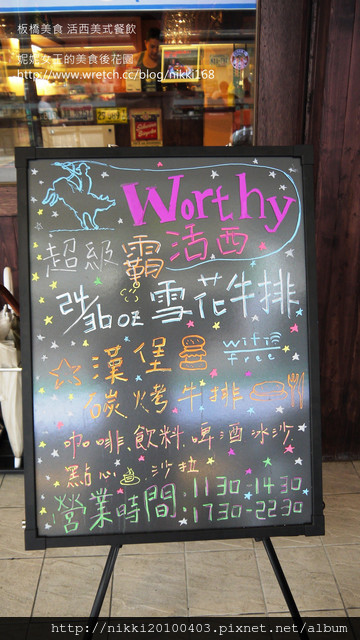 板橋美食 活西美式餐飲
妮妮女王的美食後花園
http://www.wretch.cc/blog/nikki168
Worthy
活西
超級霸
24/36oz 雪花牛排
漢堡
wifi
free
碳烤牛排
咖啡.飲料.啤酒.冰沙.
點心.沙拉
營業時間:1130-1430.
1730-2230
http://nikki20100403.pixnet.net/album